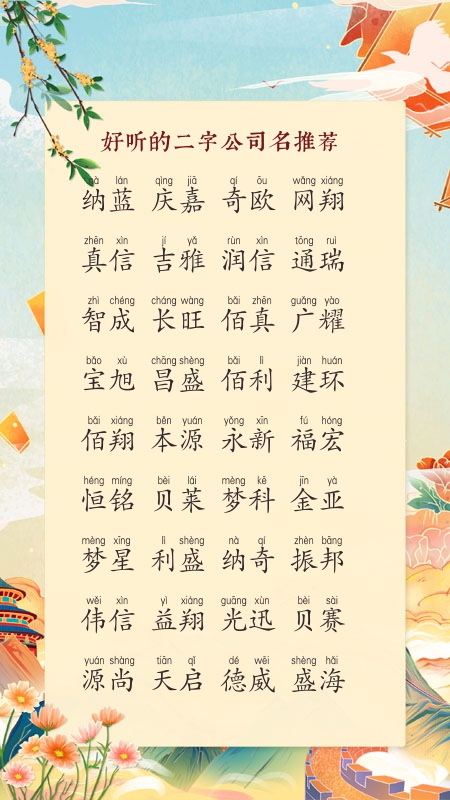 好听的二字公司名推荐
nà lán qìng jiā qí ōu wǎng xiáng
纳蓝 庆嘉 奇欧 网翔
zhēn xìn jí yǎ rùn xìn tōng ruì
真信 吉雅 润信 通瑞
zhì chéng cháng wàng bǎi zhēn guǎng yào
智成 长旺 佰真 广耀
bǎo xù chāng shèng bǎi lì jiàn huán
宝旭 昌盛 佰利 建环
bǎi xiáng běn yuán yǒng xīn fú hóng
佰翔 本源 永新 福宏
héng míng bèi lái mèng kē jīn yà
恒铭 贝莱 梦科 金亚
mèng xīng lì shèng nà qí zhèn bāng
梦星 利盛 纳奇 振邦
wěi xìn yì xiáng guāng xùn bèi sài
伟信 益翔 光迅 贝赛
yuán shàng tiān qǐ dé wēi shèng hǎi
源尚 天启 德威 盛海